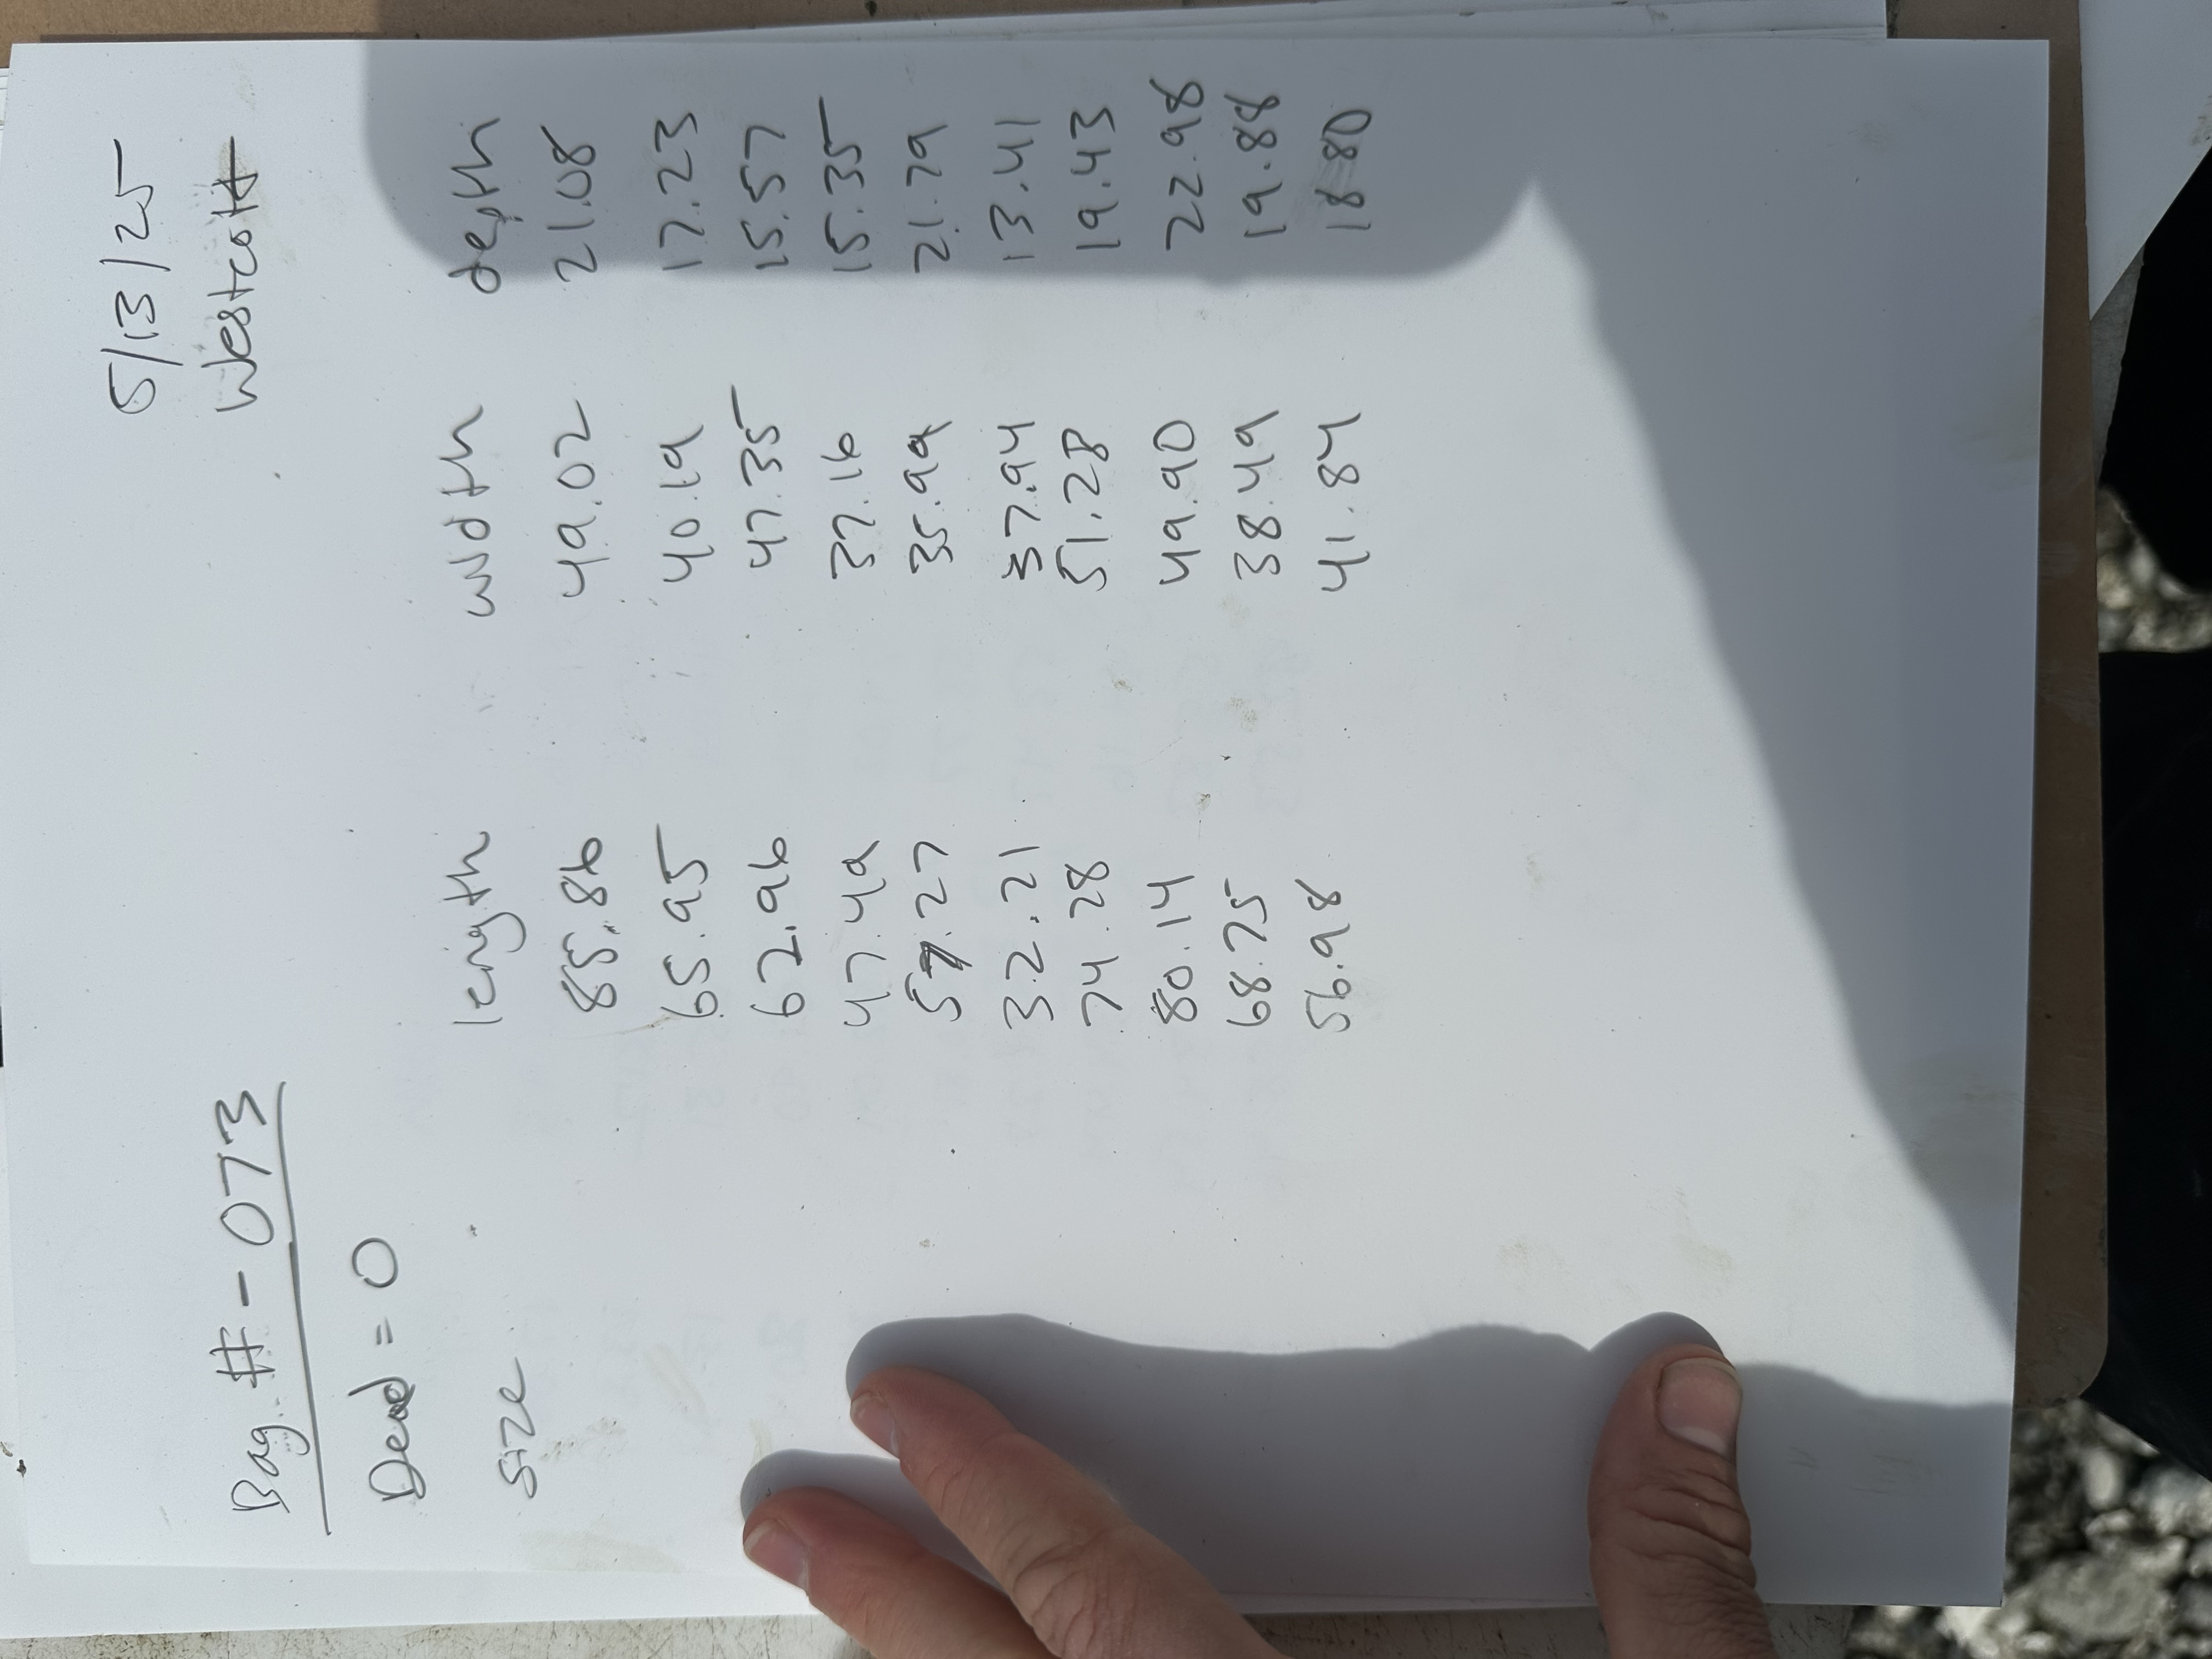 5/13/25
Westcott
Bag # - 073
Dead = 0
size length width depth
85.86 49.02 21.08
65.95 40.19 17.23
62.96 47.35 15.57
47.49 37.16 15.35
57.27 35.99 21.79
32.21 37.94 13.41
74.28 51.28 19.43
80.14 49.90 22.98
68.75 38.49 19.88
56.98 41.84 18.80